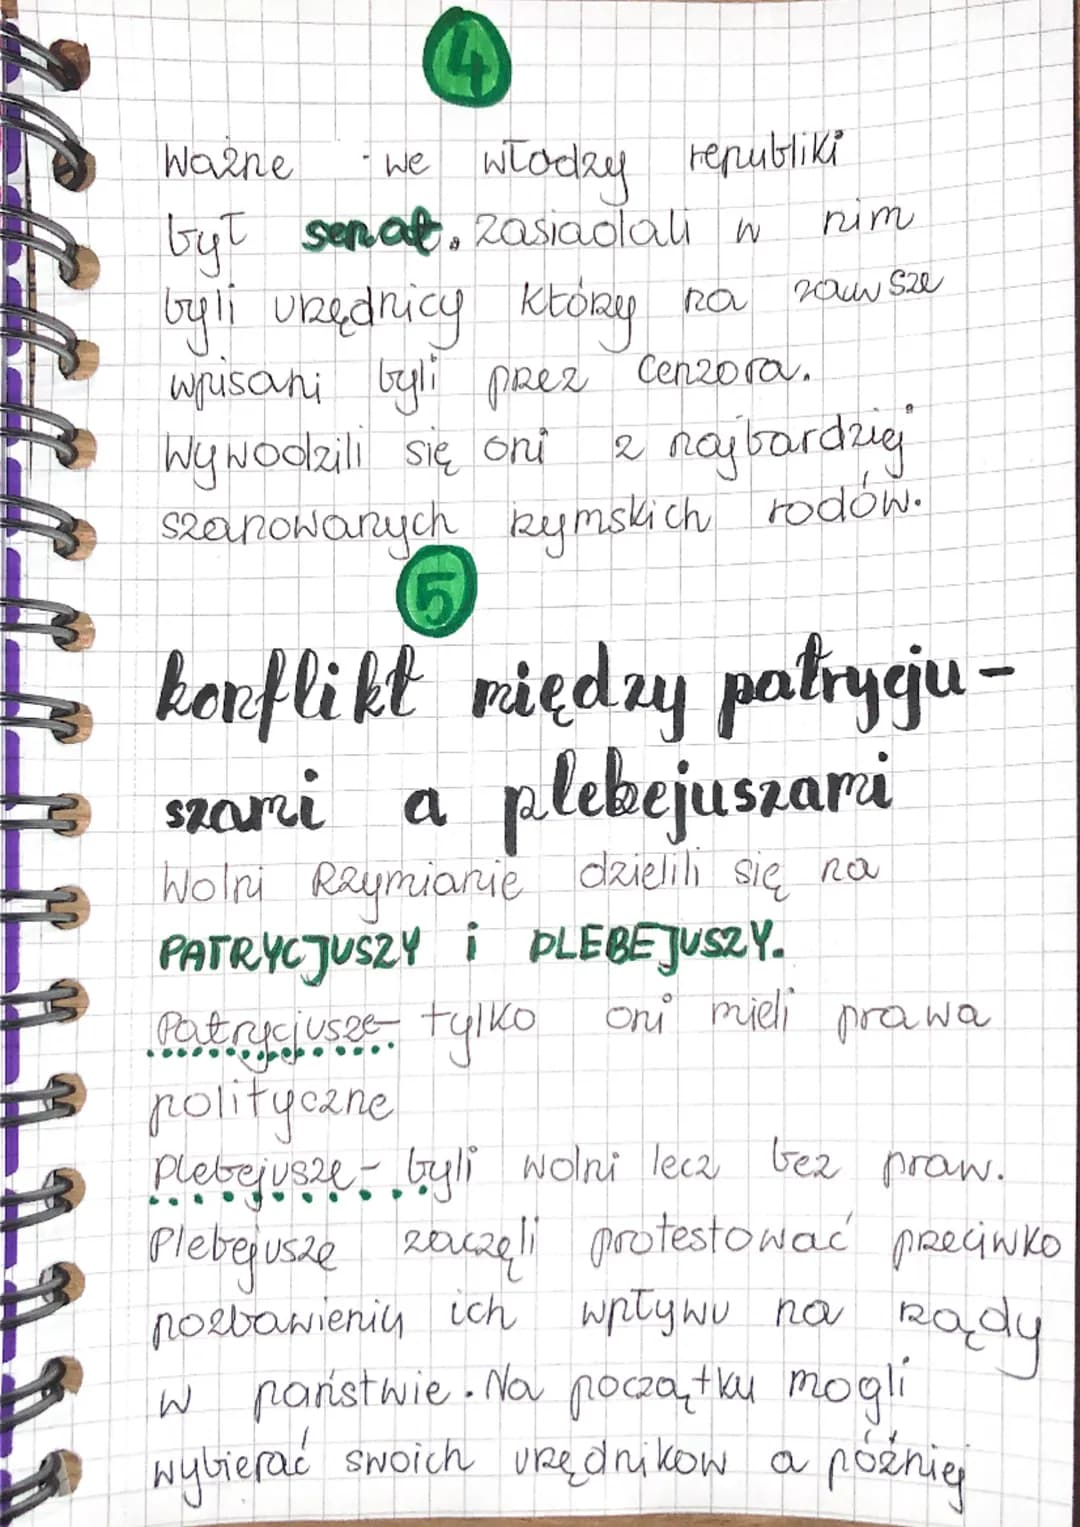 4
Ważne we włodzy republiki
był senat. Zasiadali w nim
byli urzędnicy którzy na zawsze
wpisani byli przez Cenzora.
Wywodzili się oni z najbardziej
szanowanych rzymskich rodów.
5
konflikt między patrycju-
szami a plebejuszami
Wolni Rzymianie dzielili się na
PATRYCJUSZY i PLEBEJUSZY.
Patrycjusze- tylko oni mieli prawa
polityczne
Plebejusze- byli wolni lecz bez praw.
Plebejusze zaczęli protestować przeciwko
pozbawieniu ich wpływu na rządy
w państwie. Na początku mogli
wybierać swoich urzędnikow a później